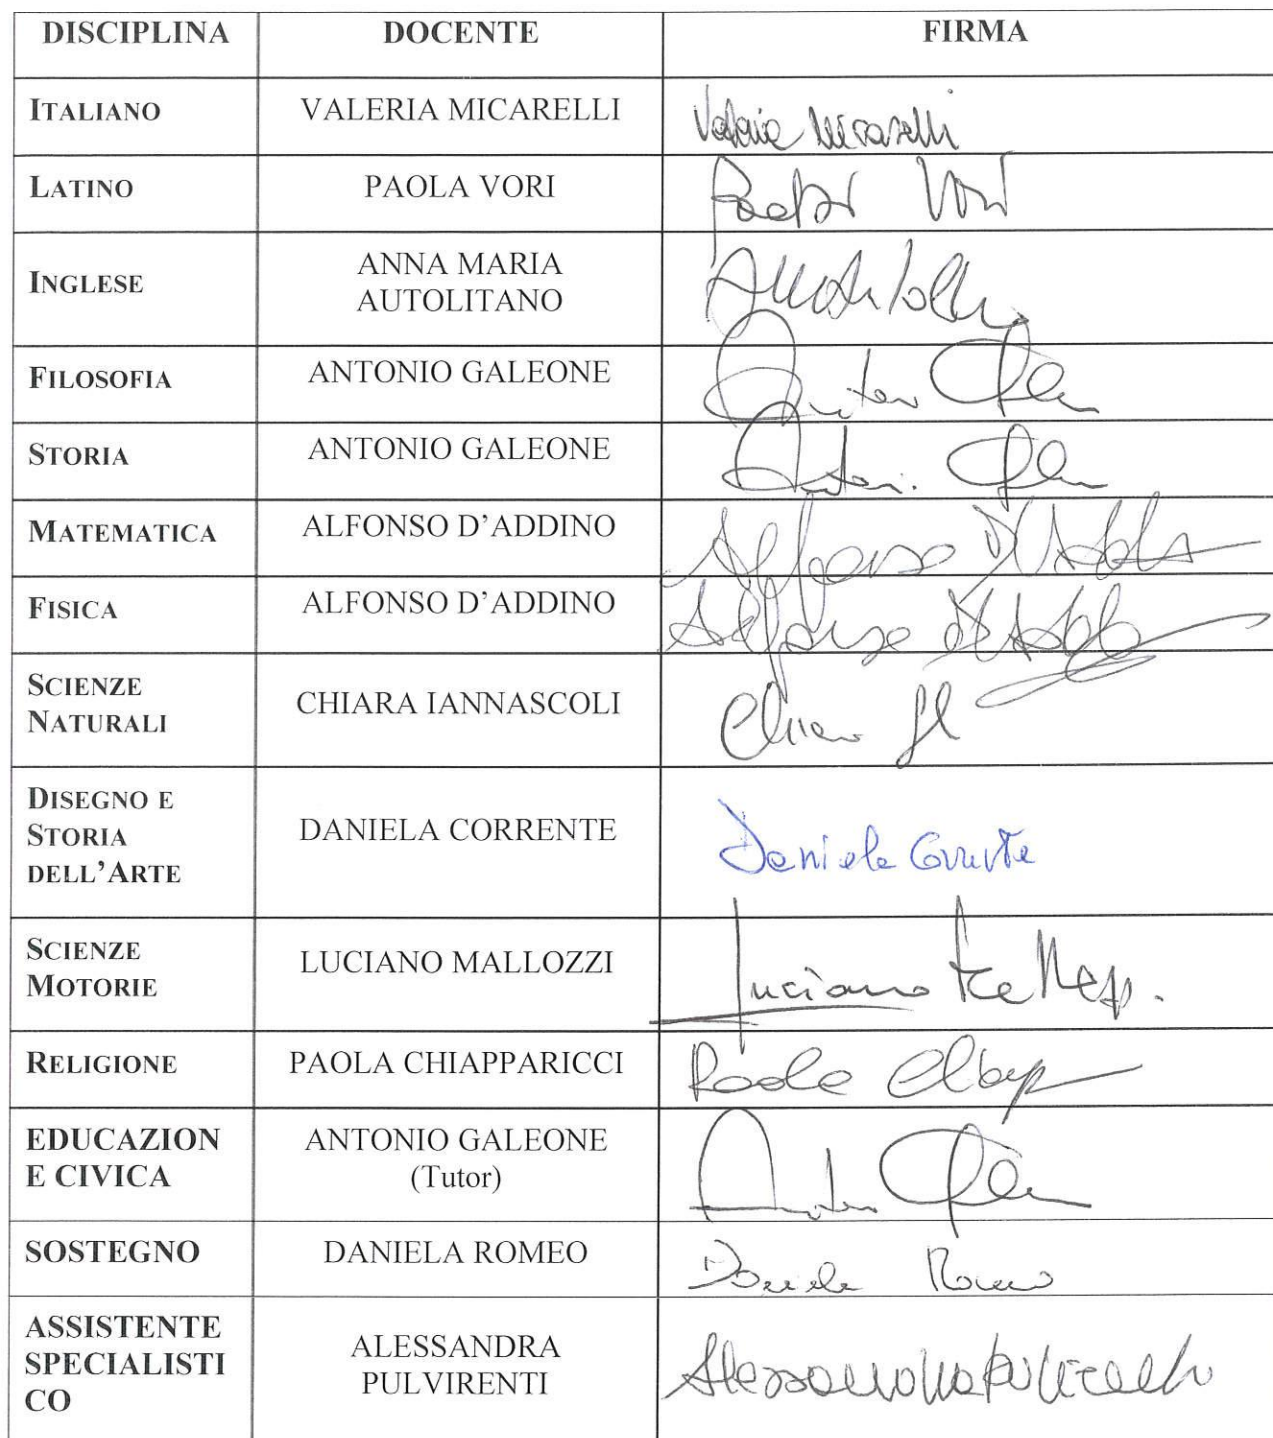 DISCIPLINA DOCENTE FIRMA
ITALIANO VALERIA MICARELLI Valeria Micarelli
LATINO PAOLA VORI Paola Vori
INGLESE ANNA MARIA
AUTOLITANO
FILOSOFIA ANTONIO GALEONE
STORIA ANTONIO GALEONE
MATEMATICA ALFONSO D'ADDINO Alfonso
FISICA ALFONSO D'ADDINO Alfonso
SCIENZE
NATURALI CHIARA IANNASCOLI Chiara
DISEGNO E
STORIA DANIELA CORRENTE Daniela Corrente
DELL'ARTE
SCIENZE
MOTORIE LUCIANO MALLOZZI Luciano
RELIGIONE PAOLA CHIAPPARICCI Paola
EDUCAZION ANTONIO GALEONE
E CIVICA (Tutor)
SOSTEGNO DANIELA ROMEO Daniela Romeo
ASSISTENTE
SPECIALISTI ALESSANDRA
CO PULVIRENTI Alessandra Pulvirenti